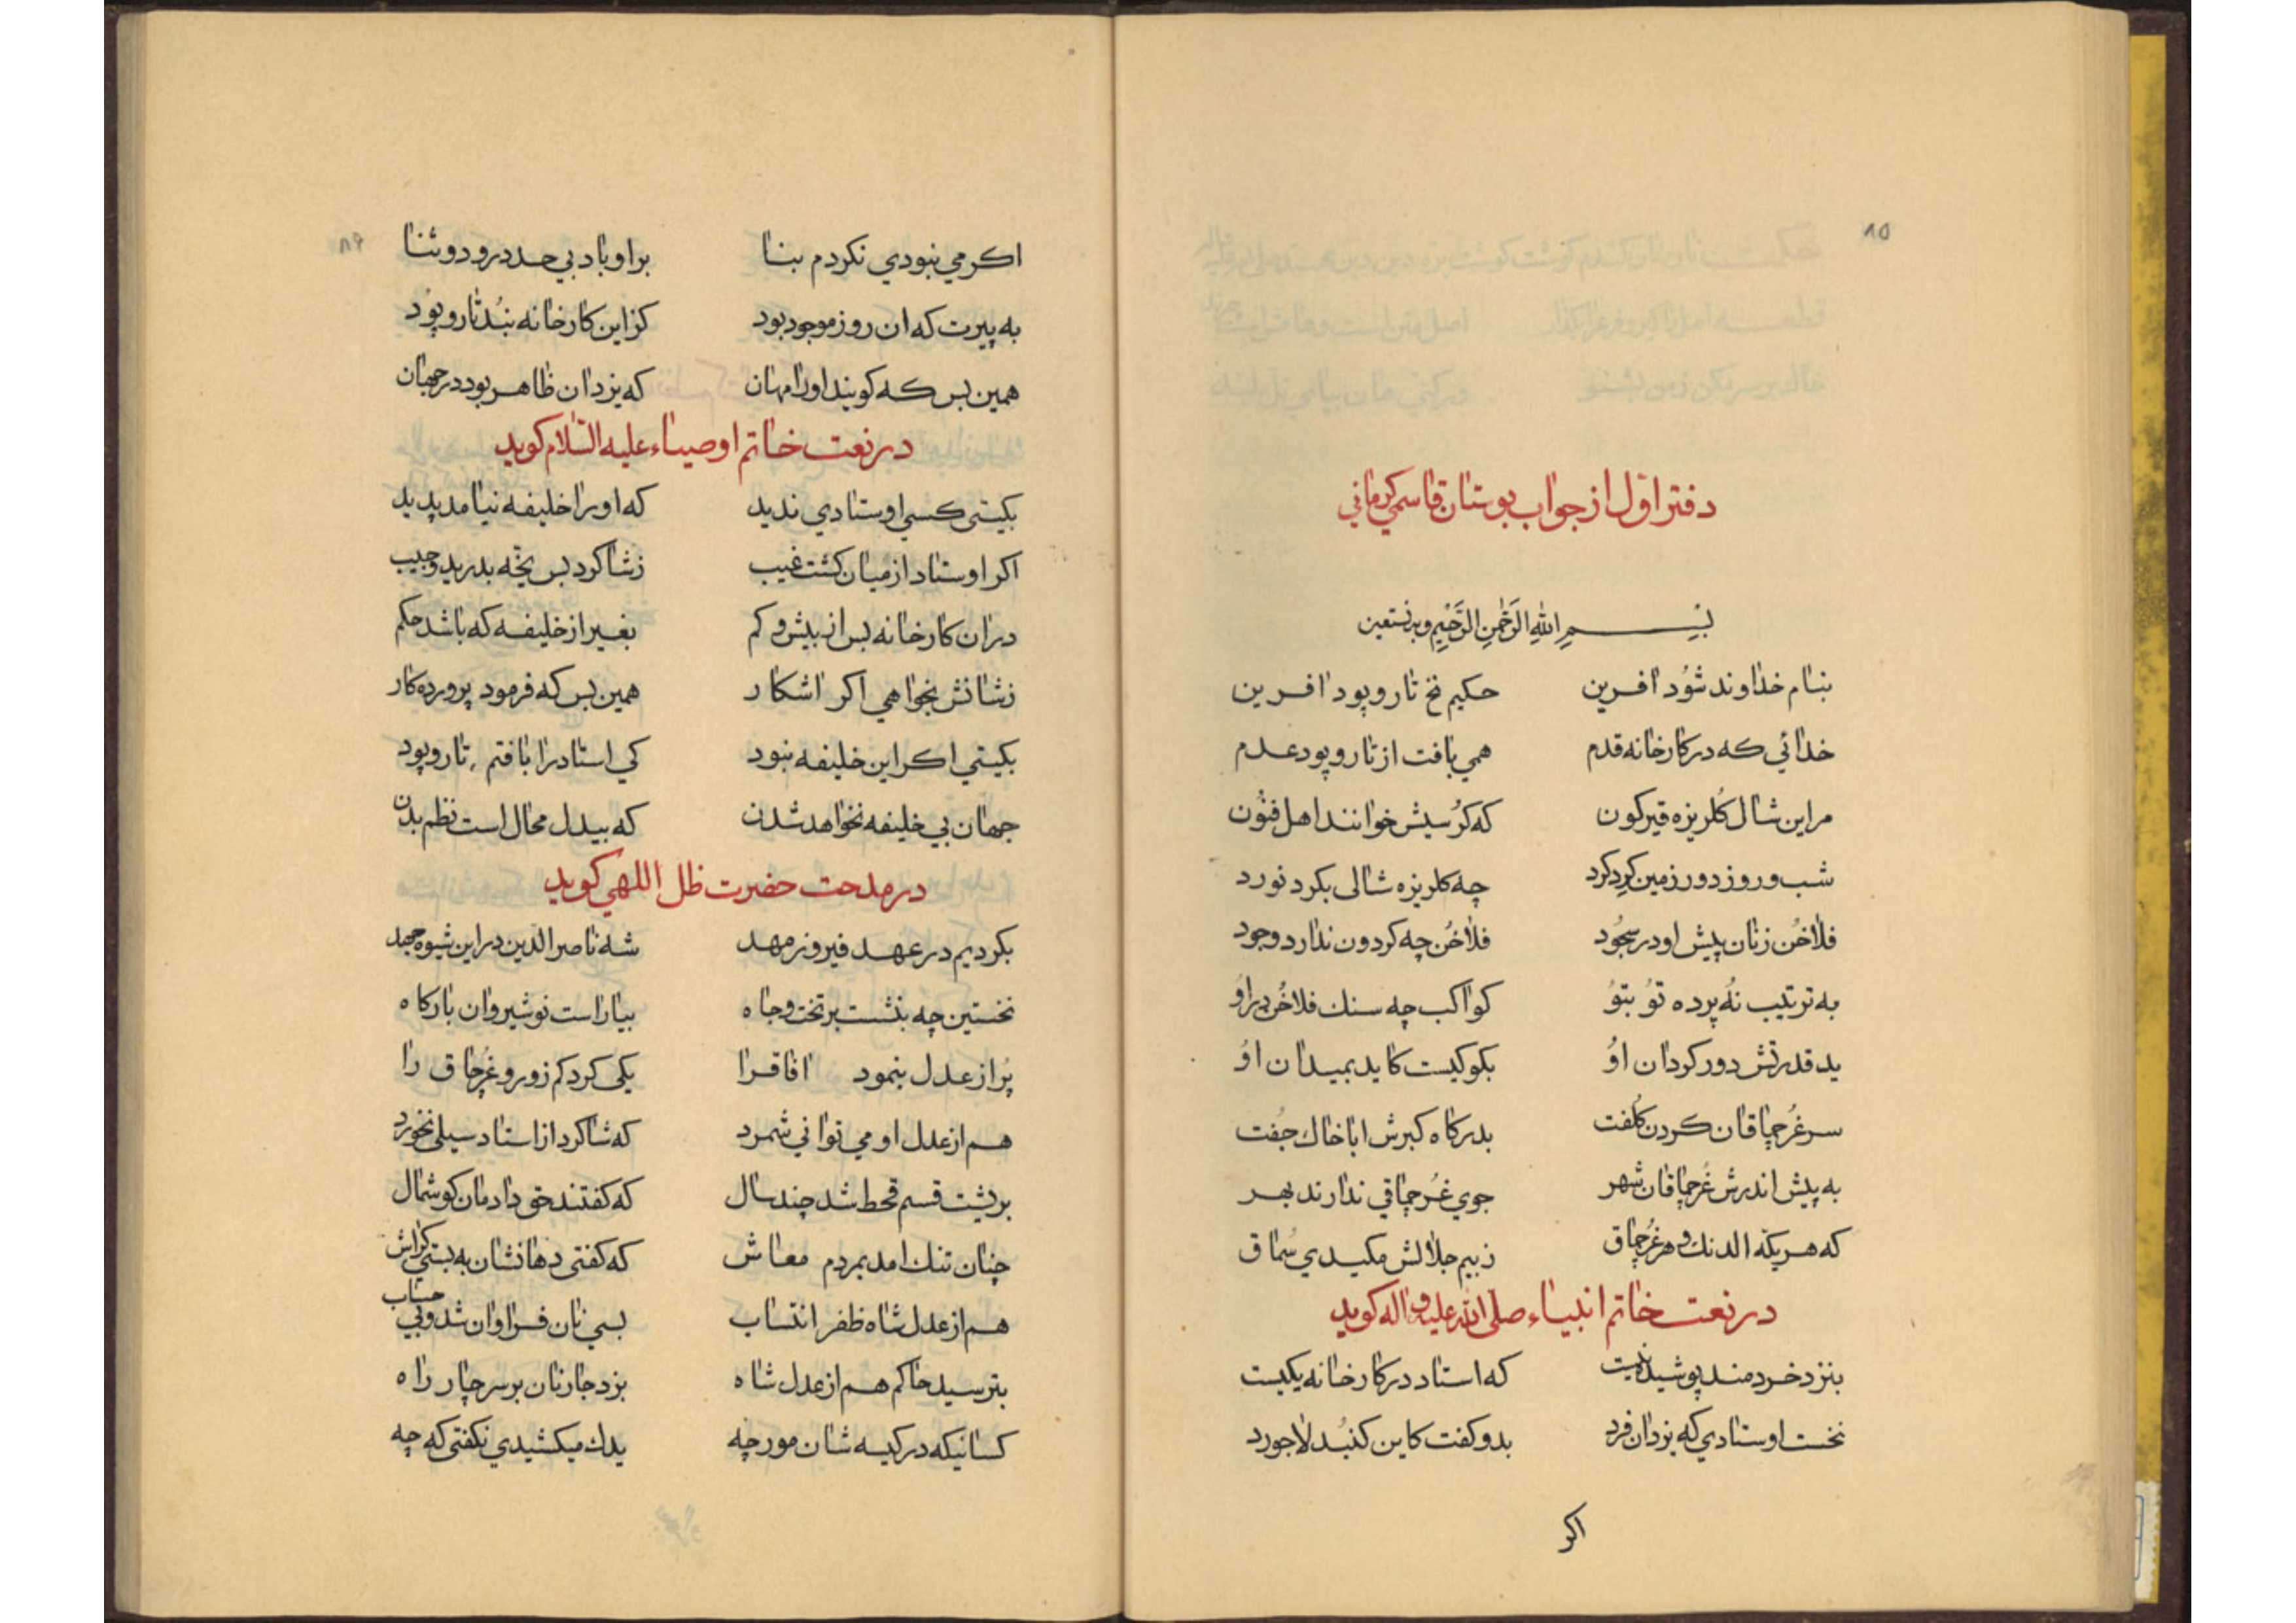 ۸۵
دفتر اول از جواب بوستان قاسمی کرمانی
بسم الله الرحمن الرحیم وبه نستعین
بنام خداوند شود افرین حکیم نخ تار و پود افرین
خدائی که در کارخانه قدم همی بافت از تار و پود عدم
مراین شال کلریزه قیرکون که کرسیش خوانند اهل فنون
شب و روز دور زمین کرد کرد چه کلریزه شالی بکرد نورد
فلاخن زنان پیش او در سجود فلاخن چه کردون ندارد وجود
به ترتیب نه پرده تو بتو کواکب چه سنك فلاخن دراو
ید قدرتش دور کردان او بکو کیست کاید بمیدان او
سر غرچماقان کردن کلفت بدرکاه کبرش اباخاك جفت
به پیش اندرش غرچماقان شهر جوی غرچماقی ندارند بهر
که هر یکه الدنك و هر غرچماق زبیم جلالش مکیدی سماق
در نعت خاتم انبیاء صلی الله علیه و اله کوید
بنزد خردمند پوشیده نیست که استاد در کارخانه یکیست
نخست اوستادی که یزدان فرد بدو کفت کاین کنبد لاجورد
اکر
۸۶
اکر می نبودی نکردم بنا براو باد بی حد درود و ثنا
به پیرت که ان روز موجود بود کزاین کارخانه نبد تار و پود
همین بس که کویند اورا مهان که یزدان ظاهر بود در جهان
در نعت خاتم اوصیاء علیه السلام کوید
بکیتی کسی اوستادی ندید که اورا خلیفه نیامد پدید
اکر اوستاد از میان کشت غیب زشاکرد بس یخه بدرید و جیب
دران کارخانه بس از بیش و کم بغیر از خلیفه که باشد حکم
نشانش بخواهی اکر اشکار همین بس که فرمود پرورده کار
بکیتی اکر این خلیفه نبود کی استاد را بافتم تار و پود
جهان بی خلیفه نخواهد شدن که بیدل محال است نظم بدن
در مدحت حضرت ظل اللهی کوید
بکردیم در عهد فیروز مهد شه ناصرالدین دراین شیوه جهد
نخستین چه بنشست بر تخت و جاه بیاراست نوشیروان بارکاه
پر از عدل بنمود افاقرا یکی کرد کم زور و غرچاق را
هم از عدل او می توانی شمرد که شاکرد از استاد سیلی نخورد
بر پشت قسم قحط شد چند سال که کفتند حق دادمان کوشمال
چنان تنك امد بمردم معاش که کفتی دهانشان به بستی کراش
هم از عدل شاه ظفر انتساب بسی نان فراوان شد و بی حساب
بترسید حاکم هم از عدل شاه بزد جار نان بر سر چار راه
کسانیکه در کیسه شان مورچه یدك میکشیدی نکفتی که چه